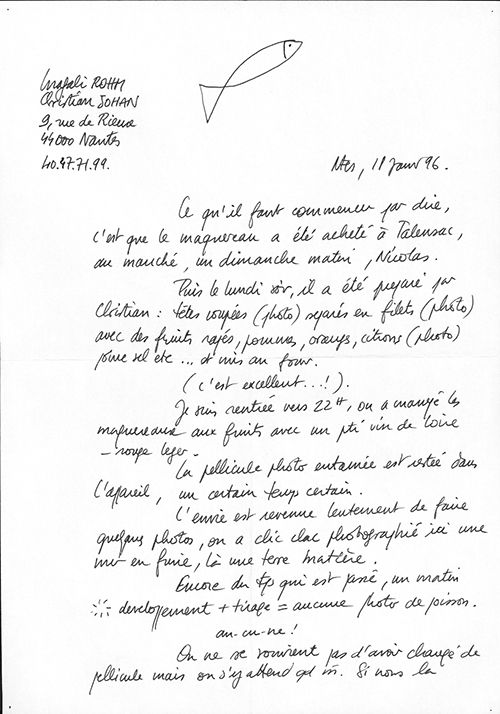 Christian JOHAN
9, rue de Rieux
44000 Nantes
40.47.71.99.
Ntes, 11 Janv 96.
Ce qu'il faut commencer par dire,
c'est que le maquereau a été acheté à Talensac,
au marché, un dimanche matin, Nicolas.
Puis le lundi soir, il a été préparé par
Christian : têtes coupées (photo) séparés en filets (photo)
avec des fruits rapés, pommes, oranges, citrons (photo)
poivre sel etc ... et mis au four.
(c'est excellent...!).
Je suis rentrée vers 22H, on a mangé les
maquereaux aux fruits avec un pti vin de Loire
- rouge léger -
La pellicule photo entamée est restée dans
l'appareil, un certain temps certain.
L'envie est revenue lentement de faire
quelques photos, on a clic clac photographié ici une
mer en furie, là une terre matière.
Encore du tps qui est passé, un matin
developpement + tirage = aucune photo de poisson.
au-cu-ne !
On ne se souvient pas d'avoir changé de
pellicule mais on s'y attend qd m̄. Si nous la